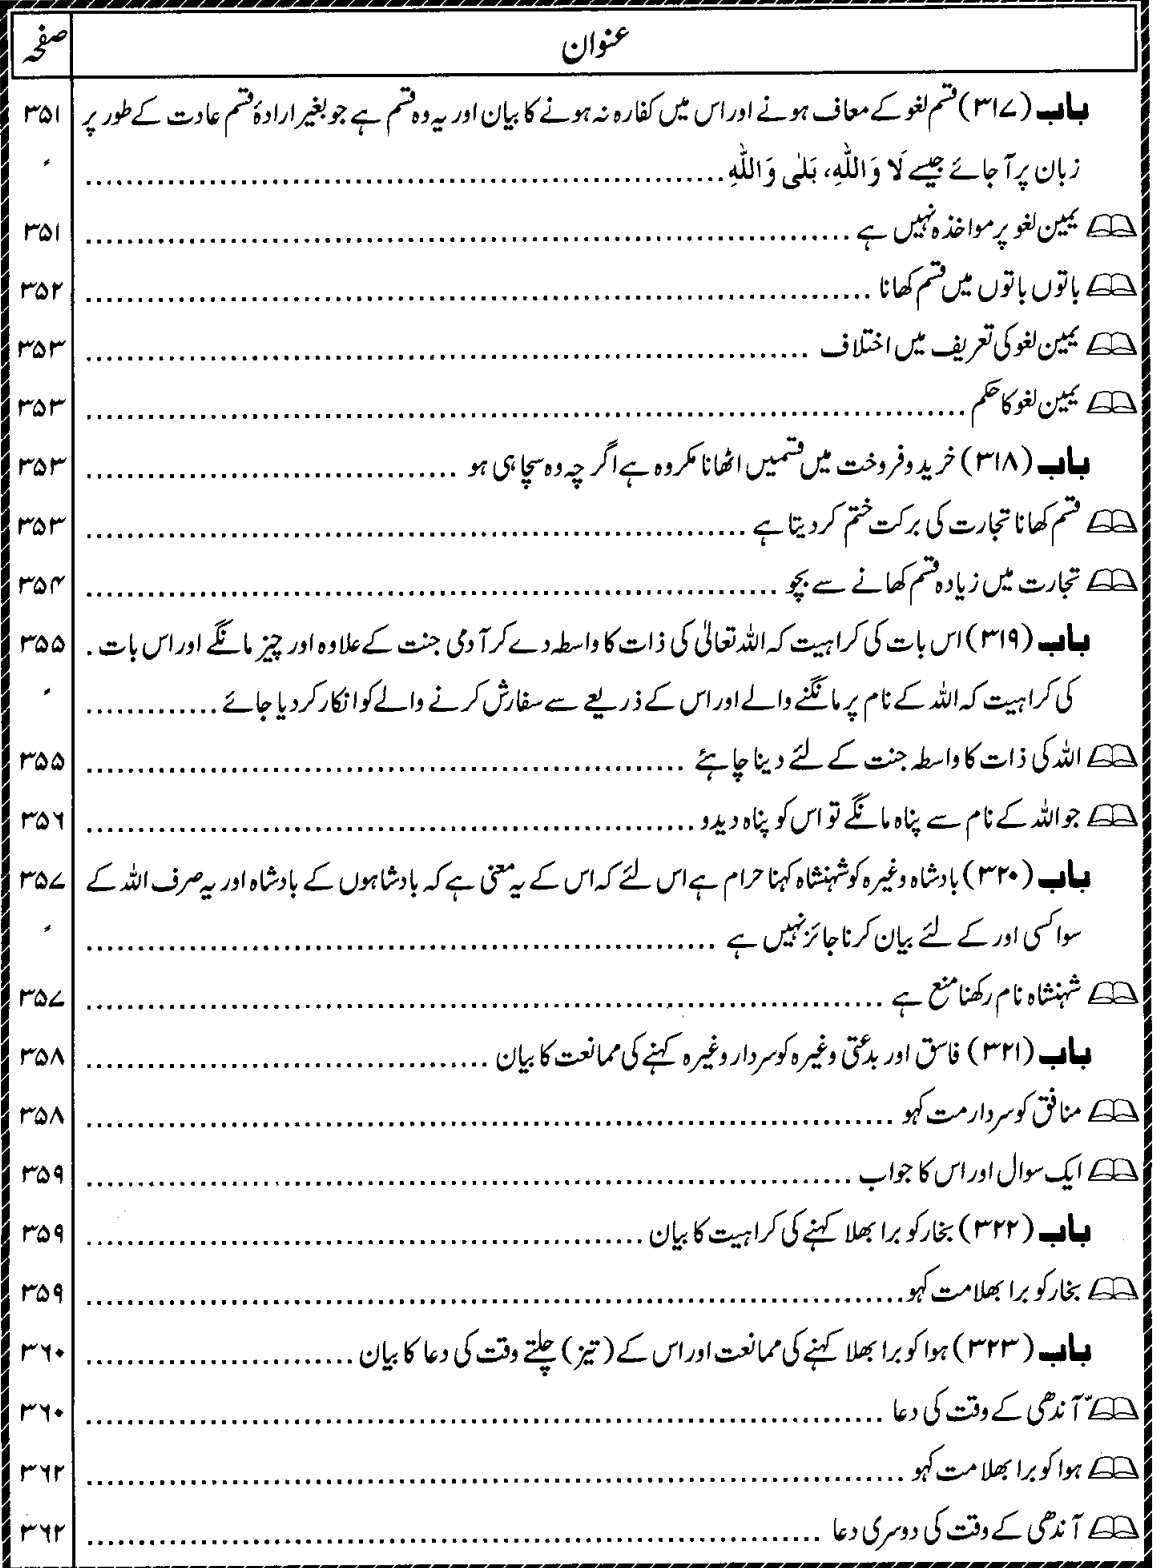 عنوان صفحہ
باب (۳۱۷) قسم لغو کے معاف ہونے اور اس میں کفارہ نہ ہونے کا بیان اور یہ وہ قسم ہے جو بغیر ارادۂ قسم عادت کے طور پر ۳۵۱
زبان پر آجائے جیسے لَا وَاللّٰہِ، بَلٰی وَاللّٰہِ
یمین لغو پر مواخذہ نہیں ہے ۳۵۱
باتوں باتوں میں قسم کھانا ۳۵۲
یمین لغو کی تعریف میں اختلاف ۳۵۳
یمین لغو کا حکم ۳۵۳
باب (۳۱۸) خرید وفروخت میں قسمیں اٹھانا مکروہ ہے اگر چہ وہ سچا ہی ہو ۳۵۳
قسم کھانا تجارت کی برکت ختم کر دیتا ہے ۳۵۳
تجارت میں زیادہ قسم کھانے سے بچو ۳۵۴
باب (۳۱۹) اس بات کی کراہیت کہ اللہ تعالیٰ کی ذات کا واسطہ دے کر آدمی جنت کے علاوہ اور چیز مانگے اور اس بات ۳۵۵
کی کراہیت کہ اللہ کے نام پر مانگنے والے اور اس کے ذریعے سے سفارش کرنے والے کو انکار کر دیا جائے
اللہ کی ذات کا واسطہ جنت کے لئے دینا چاہئے ۳۵۵
جو اللہ کے نام سے پناہ مانگے تو اس کو پناہ دیدو ۳۵۶
باب (۳۲۰) بادشاہ وغیرہ کو شہنشاہ کہنا حرام ہے اس لئے کہ اس کے یہ معنی ہے کہ بادشاہوں کے بادشاہ اور یہ صرف اللہ کے ۳۵۷
سوا کسی اور کے لئے بیان کرنا جائز نہیں ہے
شہنشاہ نام رکھنا منع ہے ۳۵۷
باب (۳۲۱) فاسق اور بدعتی وغیرہ کو سردار وغیرہ کہنے کی ممانعت کا بیان ۳۵۸
منافق کو سردار مت کہو ۳۵۸
ایک سوال اور اس کا جواب ۳۵۹
باب (۳۲۲) بخار کو برا بھلا کہنے کی کراہیت کا بیان ۳۵۹
بخار کو برا بھلا مت کہو ۳۵۹
باب (۳۲۳) ہوا کو برا بھلا کہنے کی ممانعت اور اس کے (تیز) چلتے وقت کی دعا کا بیان ۳۶۰
آندھی کے وقت کی دعا ۳۶۰
ہوا کو برا بھلا مت کہو ۳۶۲
آندھی کے وقت کی دوسری دعا ۳۶۲